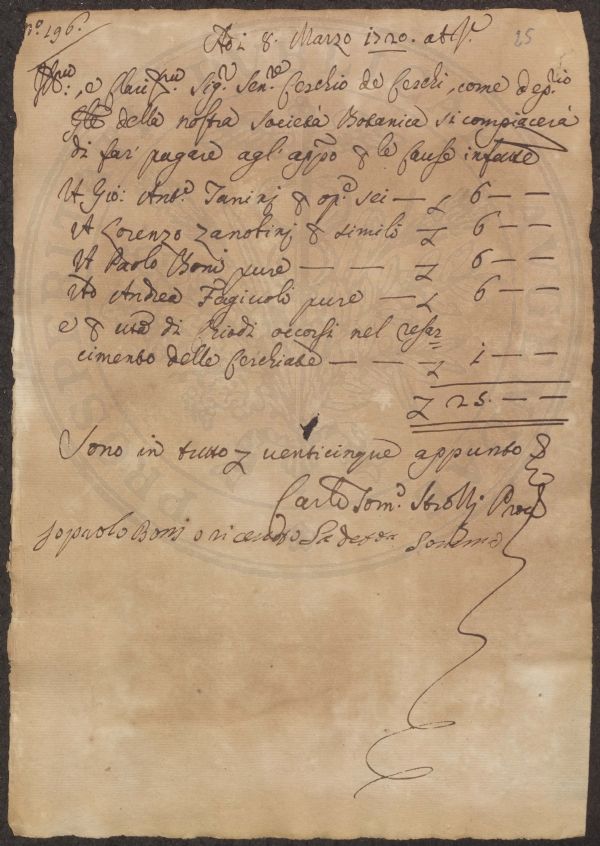 n.º 196.
Adi 8. Marzo 1720. ab I.ª 25
Ill.mo, e Clariss.mo Sig.r Sen.re Cerchio de Cerchi, come dep.rio
Gle della nostra Società Botanica si compiacerà
di far pagare agl' app.º le Cause infatte
A Gio: Ant.º Tanini op.e sei — £ 6 — —
A Lorenzo Zanobini simili — £ 6 — —
A Paolo Boni pure — — — £ 6 — —
Ad Andrea Fagiuoli pure — £ 6 — —
e di Chiodi occorsi nel resar=
cimento delle Cerchiate — — — £ 1 — —
£ 25. — —
Sono in tutto £ venticinque appunto
Carlo Tom.º Strozzi Prov.
Io paolo Boni o ricevuto La detta Somma